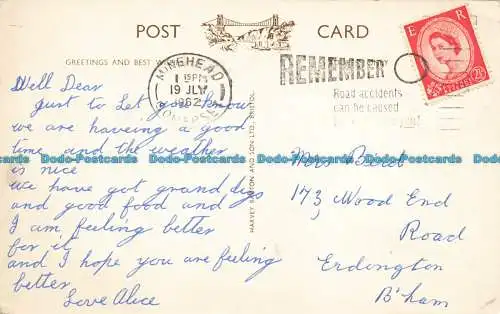 POST CARD
GREETINGS AND BEST
MINEHEAD
1 15PM
19 JLY
1962
SOMERSET
REMEMBER
Road accidents
can be caused
E R
2½D
HARVEY BARTON AND SON LTD., BRISTOL
Well Dear
Just to Let you know
we are haveing a good
time and the weather
is nice
we have got grand digs
and good food and
I am feeling better
for it
and I hope you are feeling
better
Love Alice
Mrs Bird
173 Wood End
Road
Erdington
B'ham
Dodo-Postcards Dodo-Postcards Dodo-Postcards Dodo-Postcards Dodo-Postcards